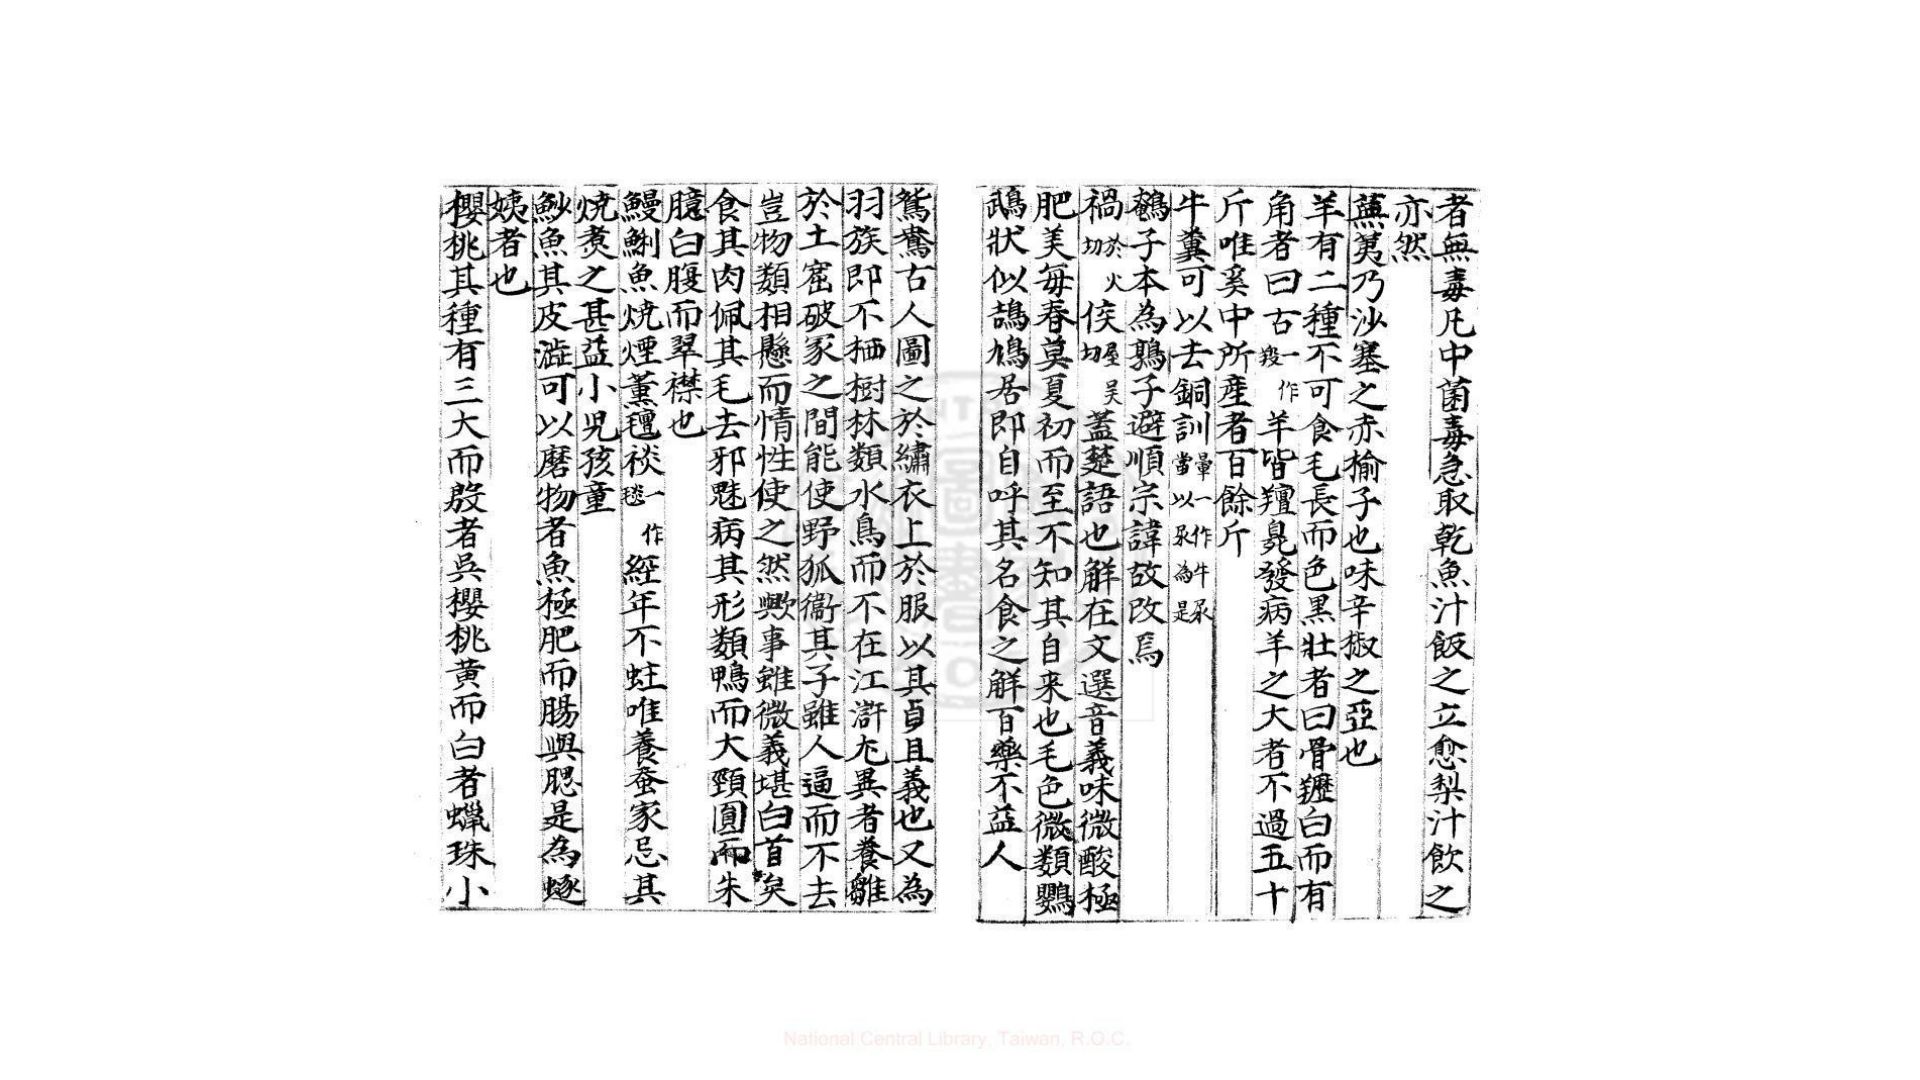 者無毒凡中菌毒急取乾魚汁飯之立愈梨汁飲之
亦然
蕪荑乃沙塞之赤揄子也味辛椒之亞也
羊有二種不可食毛長而色黑壯者曰骨䍽白而有
角者曰古一作羖羊皆羶臭發病羊之大者不過五十
斤唯奚中所産者百餘斤
牛糞可以去銅訓暈一作牛尿當以尿為是
鵪子本為鶉子避順宗諱故改焉
禍於火切侯屋吴切蓋楚語也觧在文選音義味微酸極
肥美每春莫夏初而至不知其自来也毛色微類鸚
鵡狀似鵠鳩居即自呼其名食之觧百藥不益人
鴛鴦古人圖之於繡衣上於服以其貞且義也又為
羽族即不栖樹林類水鳥而不在江滸尤異者養雛
於土窟破冢之間能使野狐衞其子雖人逼而不去
豈物類相懸而情性使之然歟事雖微義堪白首矣
食其肉佩其毛去邪魅病其形類鴨而大頸圓而朱
臆白腹而翠襟也
鰻鯏魚焼煙薰氊裧一作毯經年不蛀唯養蚕家忌其
焼煮之甚益小児孩童
魦魚其皮澁可以磨物者魚極肥而腸與腮是為蟚
蛦者也
櫻桃其種有三大而殷者吳櫻桃黄而白者蠟珠小
National Central Library, Taiwan, R.O.C.